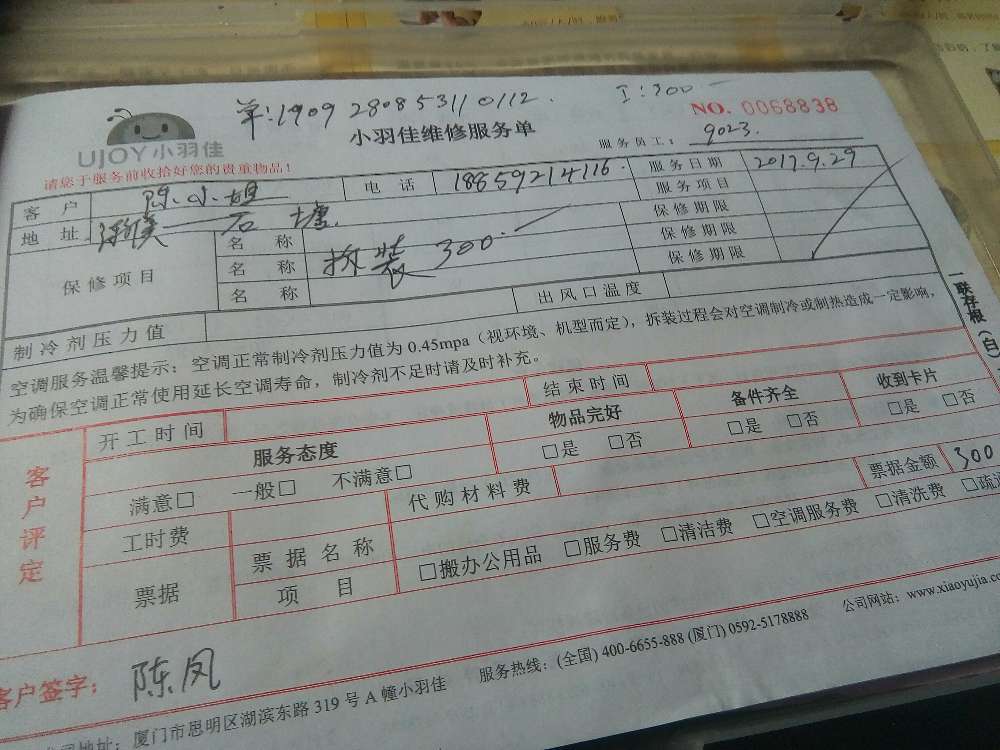 单:1909 28085311 0112.
工:300
NO. 0068838
UJOY小羽佳
小羽佳维修服务单
服务员工: 9023.
请您于服务前收拾好您的贵重物品!
客 户 陈小姐 电 话 18859214116. 服务日期 2017.9.29
地 址 石塘. 服务项目
保修项目 名 称 保修期限
名 称 拆装 300 保修期限
名 称 保修期限
制冷剂压力值 出风口温度
空调服务温馨提示:空调正常制冷剂压力值为0.45mpa(视环境、机型而定),拆装过程会对空调制冷或制热造成一定影响,
为确保空调正常使用延长空调寿命,制冷剂不足时请及时补充。
一联存根(白)
客户评定
开工时间 结束时间
服务态度 物品完好 备件齐全 收到卡片
满意□ 一般□ 不满意□ □是 □否 □是 □否 □是 □否
工时费 代购材料费 票据金额 300
票据 票据名称 □搬办公用品 □服务费 □清洁费 □空调服务费 □清洗费
项 目
客户签字: 陈凤
厦门市思明区湖滨东路319号A幢小羽佳 服务热线:(全国)400-6655-888 (厦门)0592-5178888 公司网站:www.xiaoyujia.com